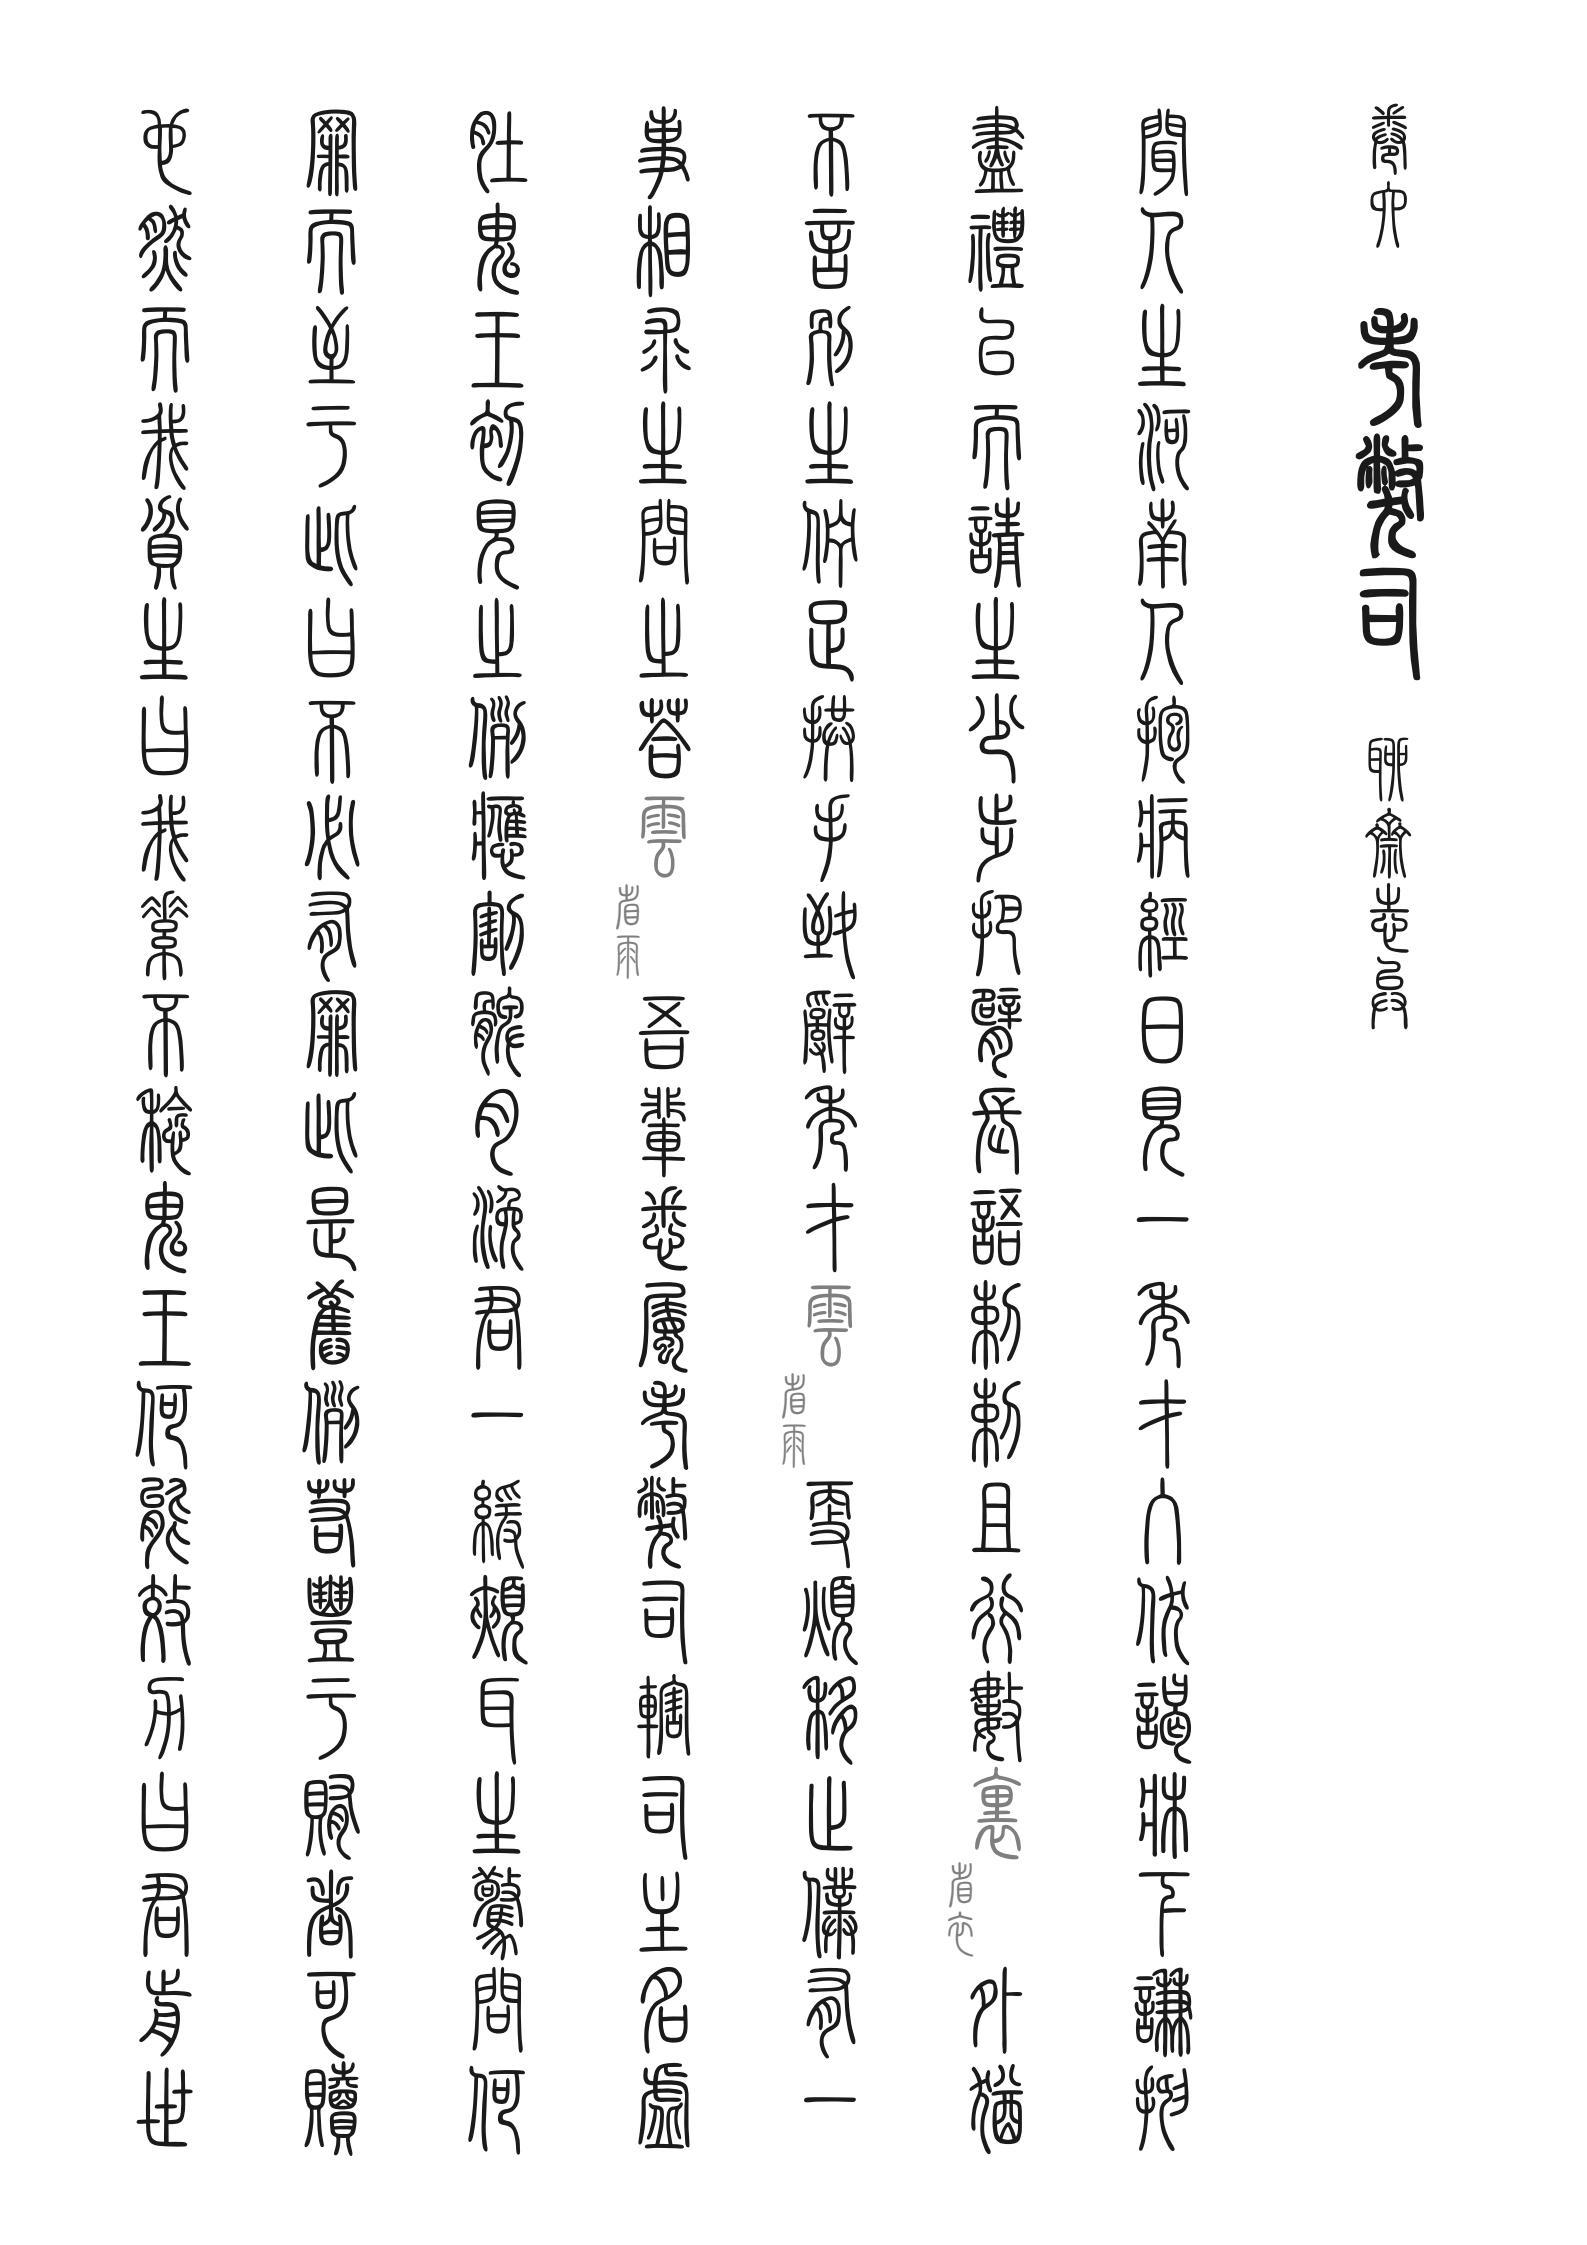 卷六 考弊司 聊齋志異
聞人生河南人抱病經日見一秀才入伏謁牀下謙抑
盡禮已而請生少步把臂長語刺刺且行數裏省衣外猶
不言別生佇足拱手致辭秀才雲省雨更煩移止僕有一
事相求生問之荅雲省雨吾輩悉屬考弊司轄司主名虛
肚鬼王初見之例應割髀肉浼君一緩頰耳生驚問何
罪而至于此曰不必有罪此是舊例若豐于賄者可贖
也然而我貧生曰我素不稔鬼王何能效力曰君前世